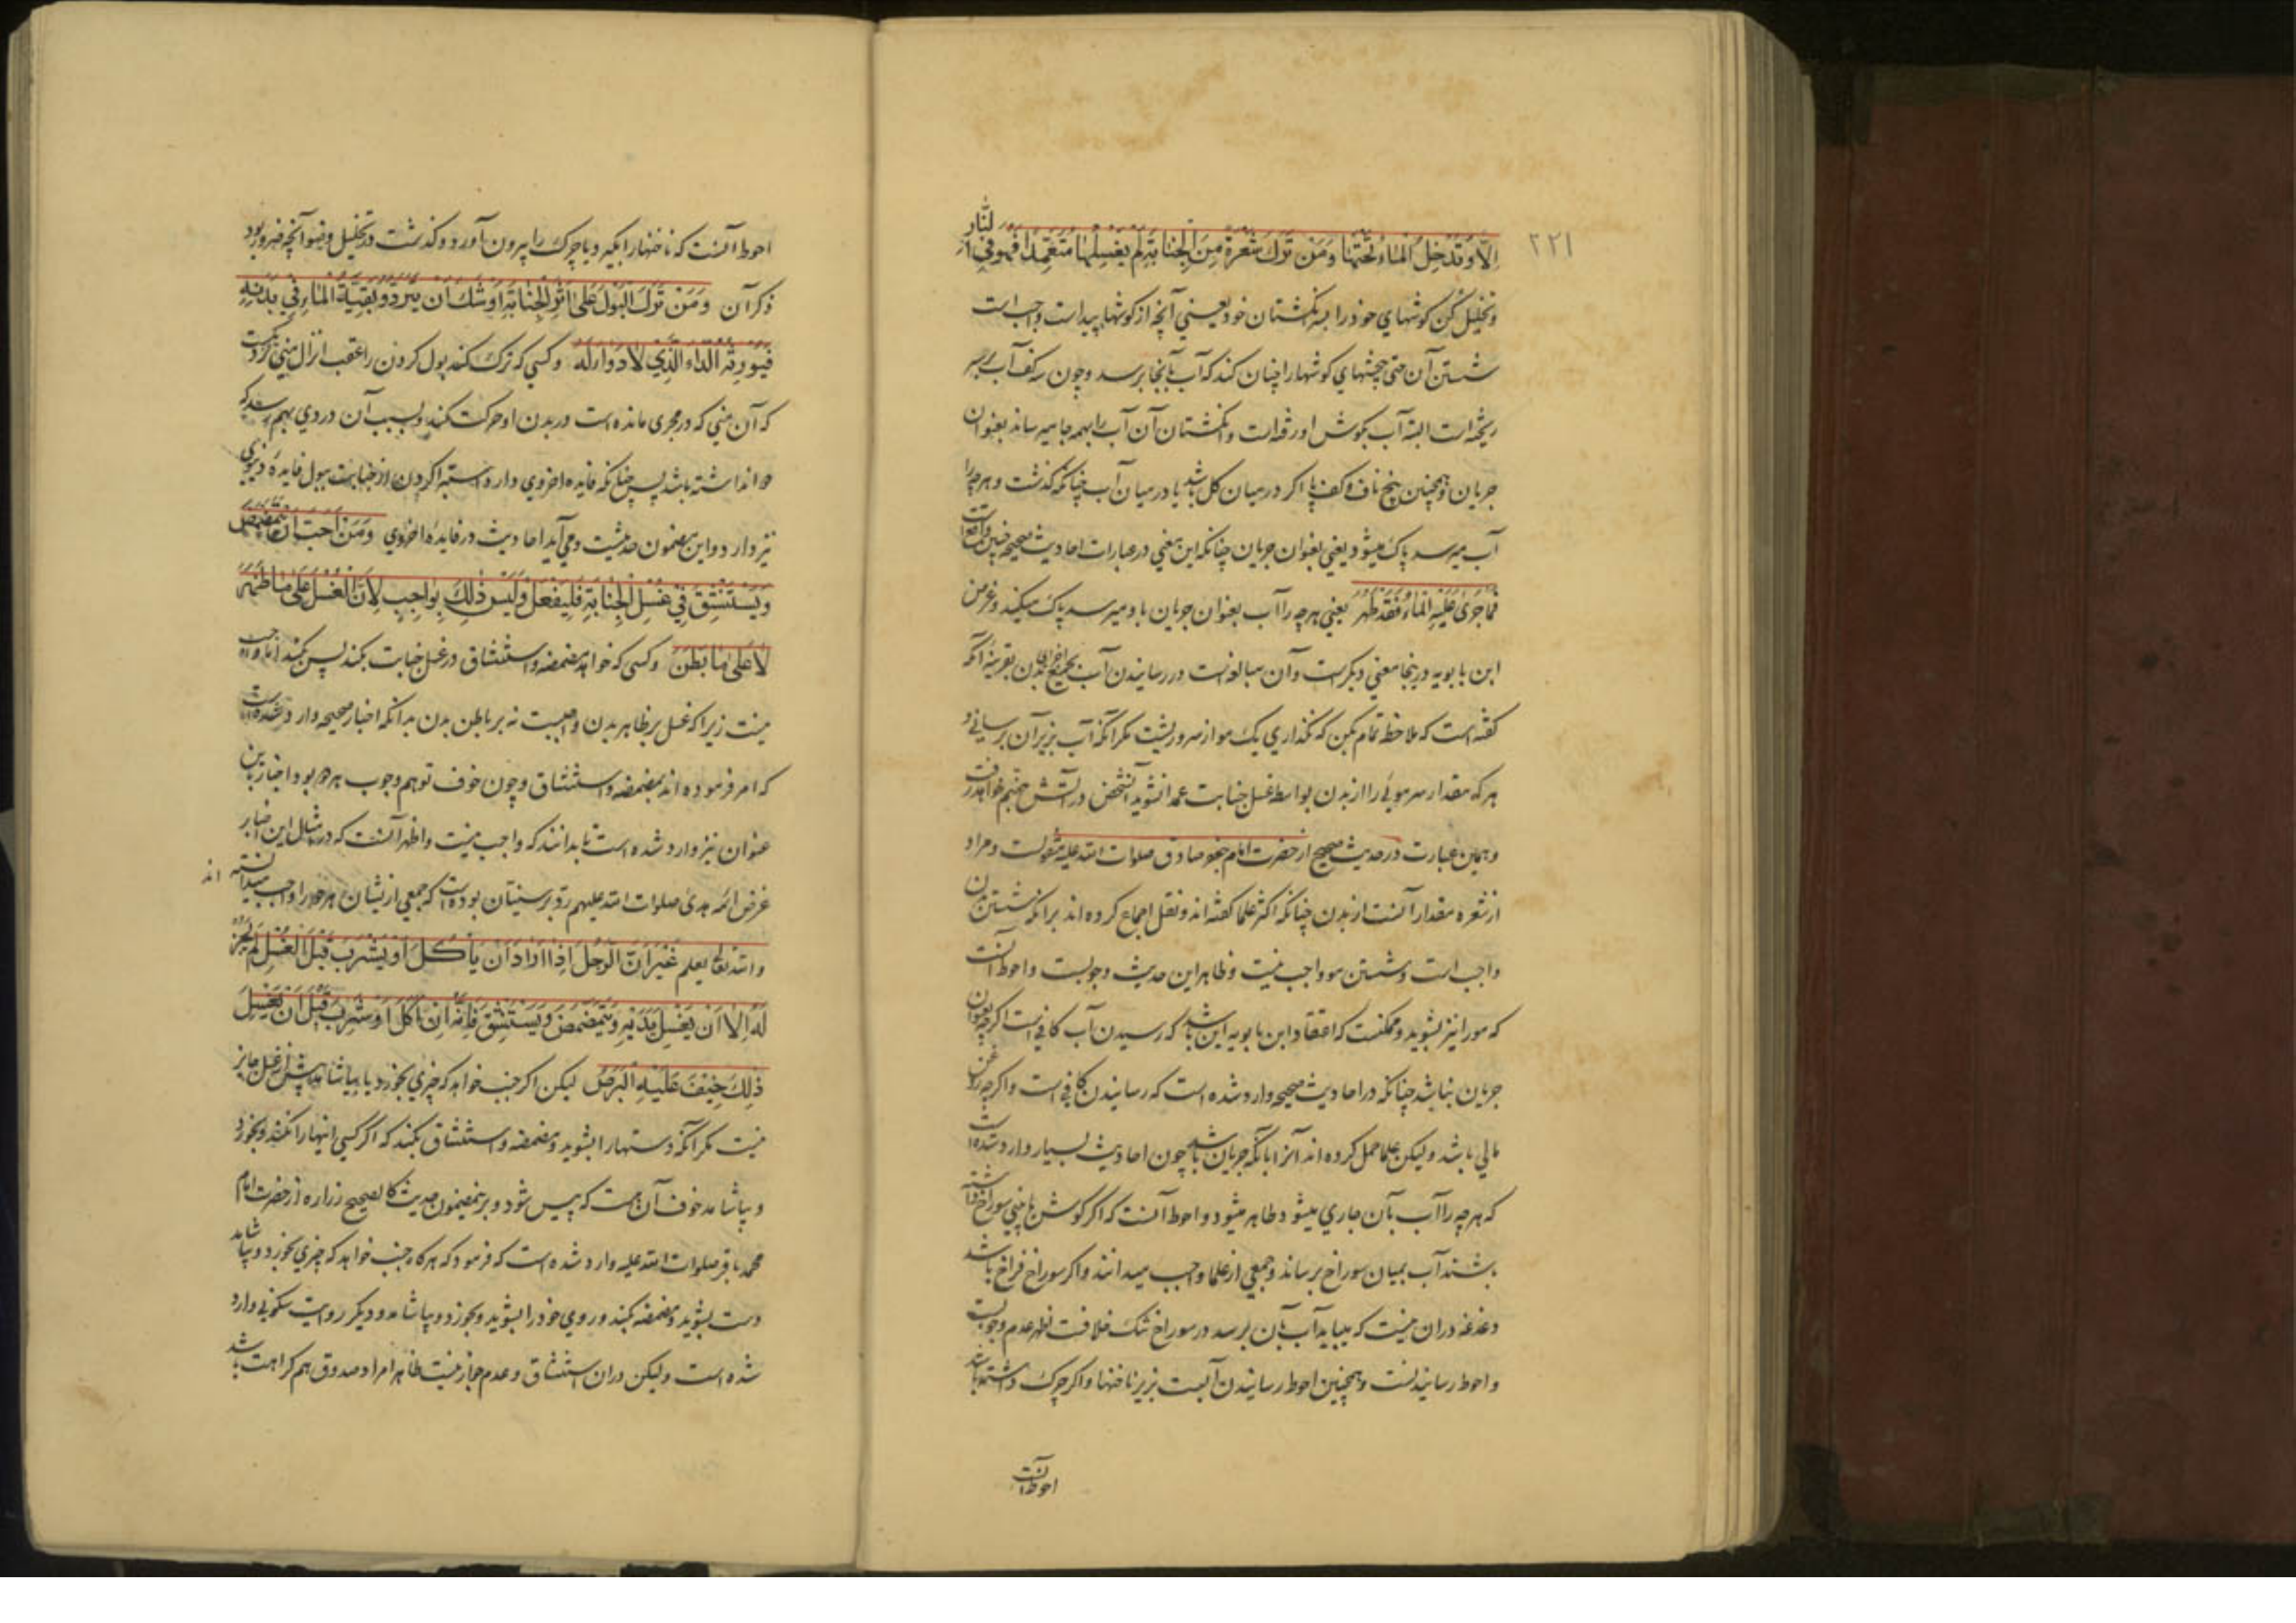 ۲۲۱
اِلّا وَقَدْ دَخَلَ الْمَاءُ تَحْتَهَا وَمَنْ تَرَكَ شَعْرَةً مِنَ الْجَنَابَةِ لَمْ يَغْسِلْهَا مُتَعَمِّدًا فَهُوَ فِي النَّارِ
وتخلیل کن کوشهاي خود را به انکشتان خود یعنی آنچه از کوشها پیداست واجب است
شستن آن حتی چینهاي کوشها را چنان کند که آب بآنجا برسد و چون سه کف آب بر سر
ریخته است البته آب بکوش او رفته است و انکشتان آن آب را بهمه جا میرساند بعنوان
جریان و همچنین بیخ ناف و کف پا اکر در میان کل باشد یا در میان آب چنانکه کذشت و هر چه را
آب میرسد پاک میشود یعنی بعنوان جریان چنانکه این معنی در عبارات احادیث صحیحه چنین واقعست
فَمَا جَرَى عَلَيْهِ الْمَاءُ فَقَدْ طَهُرَ یعنی هر چه را آب بعنوان جریان باو میرسد پاک میکند و غرض
ابن بابویه در اینجا معنی دیکرست و آن مبالغه است در رسانیدن آب بجمیع اجزای بدن بقرینه آنکه
کفته است که ملاحظه تمام بکن که نکذاري یک مو از سر و ریشت مکر آنکه آب بزیر آن برسانی و
هر که مقدار سر موئی را از بدن بواسطه غسل جنابت عمدا نشوید آنشخص در آتش جهنم خواهد رفت
و همین عبارت در حدیث صحیح از حضرت امام جعفر صادق صلوات الله علیه منقولست و مراد
از شعره مقدار آنست از بدن چنانکه اکثر علما کفته اند و نقل اجماع کرده اند بر آنکه شستن بدن
واجب است و شستن مو واجب نیست و ظاهر این حدیث وجوبست و احوط آنست
که مو را نیز بشوید و ممکنست که اعتقاد ابن بابویه این باشد که رسیدن آب کافی است اکر چه بعنوان
جریان نباشد چنانکه در احادیث صحیحه وارد شده است که رسانیدن کافی است و اکر چه روغن
مالی باشد و لیکن علما حمل کرده اند آنرا بآنکه جریان باشد چون احادیث بسیار وارد شده است
که هر چه را آب بآن جاري میشود طاهر میشود و احوط آنست که اکر کوش یا بینی سوراخ داشته
باشند آب بمیان سوراخ برساند و جمعی از علما واجب میدانند و اکر سوراخ فراخ باشد
دغدغه در ان نیست که میباید آب بآن برسد در سوراخ تنک خلافست اظهر عدم وجوبست
و احوط رسانیدنست و همچنین احوط رسانیدن آبست بزیر ناخنها و اکر چرک داشته باشد
احوط آنست
احوط آنست که ناخنها را بکیرد یا چرک را بیرون آورد و کذشت در تخلیل وضو آنچه ضرور بود
ذکر آن وَمَنْ تَرَكَ الْبَوْلَ عَلَى اَثَرِ الْجَنَابَةِ اَوْشَكَ اَنْ يَتَرَدَّدَ بَقِيَّةُ الْمَاءِ فِي بَدَنِهِ
فَيُورِثَهُ الدَّاءَ الَّذِي لَا دَوَاءَ لَهُ و کسی که ترک کند بول کردن را عقب انزال منی نزدیکست
که آن منی که در مجری مانده است در بدن او حرکت کند و بسبب آن دردي بهم رسد که
دوا نداشته باشد پس چنانکه فایده اخروي دارد استبرا کردن از جنابت ببول فایدهٔ دنیوي
نیز دارد و این مضمون حدیثست و می آید احادیث در فایدهٔ اخروي وَمَنْ اَحَبَّ اَنْ يَتَمَضْمَضَ
وَيَسْتَنْشِقَ فِي غُسْلِ الْجَنَابَةِ فَلْيَفْعَلْ وَلَيْسَ ذٰلِكَ بِوَاجِبٍ لِاَنَّ الْغُسْلَ عَلَى مَا ظَهَرَ
لَا عَلَى مَا بَطَنَ و کسی که خواهد مضمضه و استنشاق در غسل جنابت بکند پس بکند اما واجب
نیست زیرا که غسل بر ظاهر بدن واجبست نه بر باطن بدن بدانکه اخبار صحیحه وارد شده است
که امر فرموده اند بمضمضه و استنشاق و چون خوف توهم وجوب هر دو بود اخبار باین
عنوان نیز وارد شده است تا بدانند که واجب نیست و اظهر آنست که در امثال این اخبار
غرض ائمه هدی صلوات الله علیهم رد بر سنیان بوده است که جمعی از یشان هر دو را واجب میدانسته اند
والله تعالی یعلم غَيْرَ اَنَّ الرَّجُلَ اِذَا اَرَادَ اَنْ يَأْكُلَ اَوْ يَشْرَبَ قَبْلَ الْغُسْلِ لَمْ يَجُزْ
لَهُ اِلَّا اَنْ يَغْسِلَ يَدَيْهِ وَيَتَمَضْمَضَ وَيَسْتَنْشِقَ فَاِنَّهُ اِنْ اَكَلَ اَوْ شَرِبَ قَبْلَ اَنْ يَغْسِلَ
ذٰلِكَ خِيفَ عَلَيْهِ الْبَرَصُ لیکن اکر جنب خواهد که چیزي بخورد یا بیاشامد پیش از غسل جایز
نیست مکر آنکه دستها را بشوید و مضمضه و استنشاق بکند که اکر کسی اینها را نکند و بخورد
و بیاشامد خوف آن هست که پیس شود و برینمضمون حدیث کالصحیح زراره از حضرت امام
محمد باقر صلوات الله علیه وارد شده است که فرمود که هر کاه جنب خواهد که چیزي بخورد و بیاشامد
دست بشوید و مضمضه بکند و روي خود را بشوید و بخورد و بیاشامد و دیکر روایت سکونی وارد
شده است و لیکن در ان استنشاق و عدم جواز نیست ظاهرا مراد صدوق هم کراهت باشد